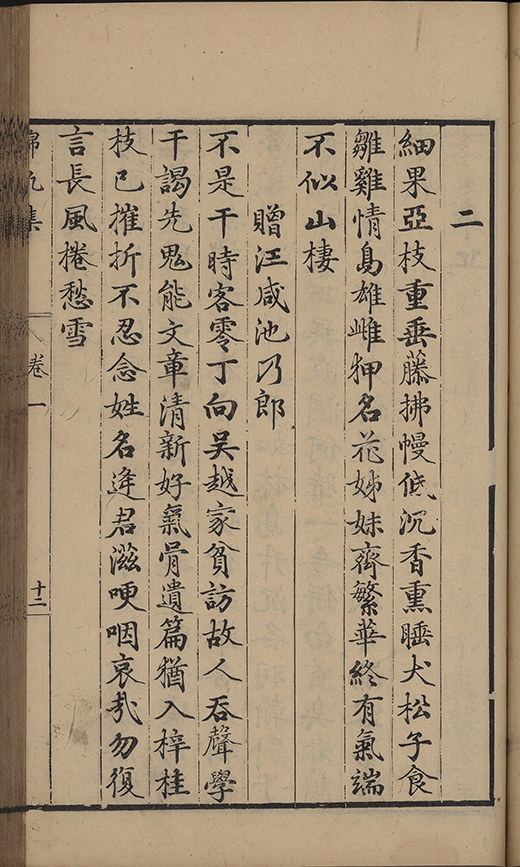 二
細果亞枝重垂藤拂幔低沉香熏睡犬松子食
雛雞情島雄雌狎名花姊妹齊繁華終有氣端
不似山棲
贈汪咸池乃郎
不是干時客零丁向吳越家貧訪故人吞聲學
干謁先鬼能文章清新好氣骨遺篇猶入梓桂
枝已摧折不忍念姓名逢君滋哽咽哀哉勿復
言長風捲愁雪
帚九集
卷一
十二